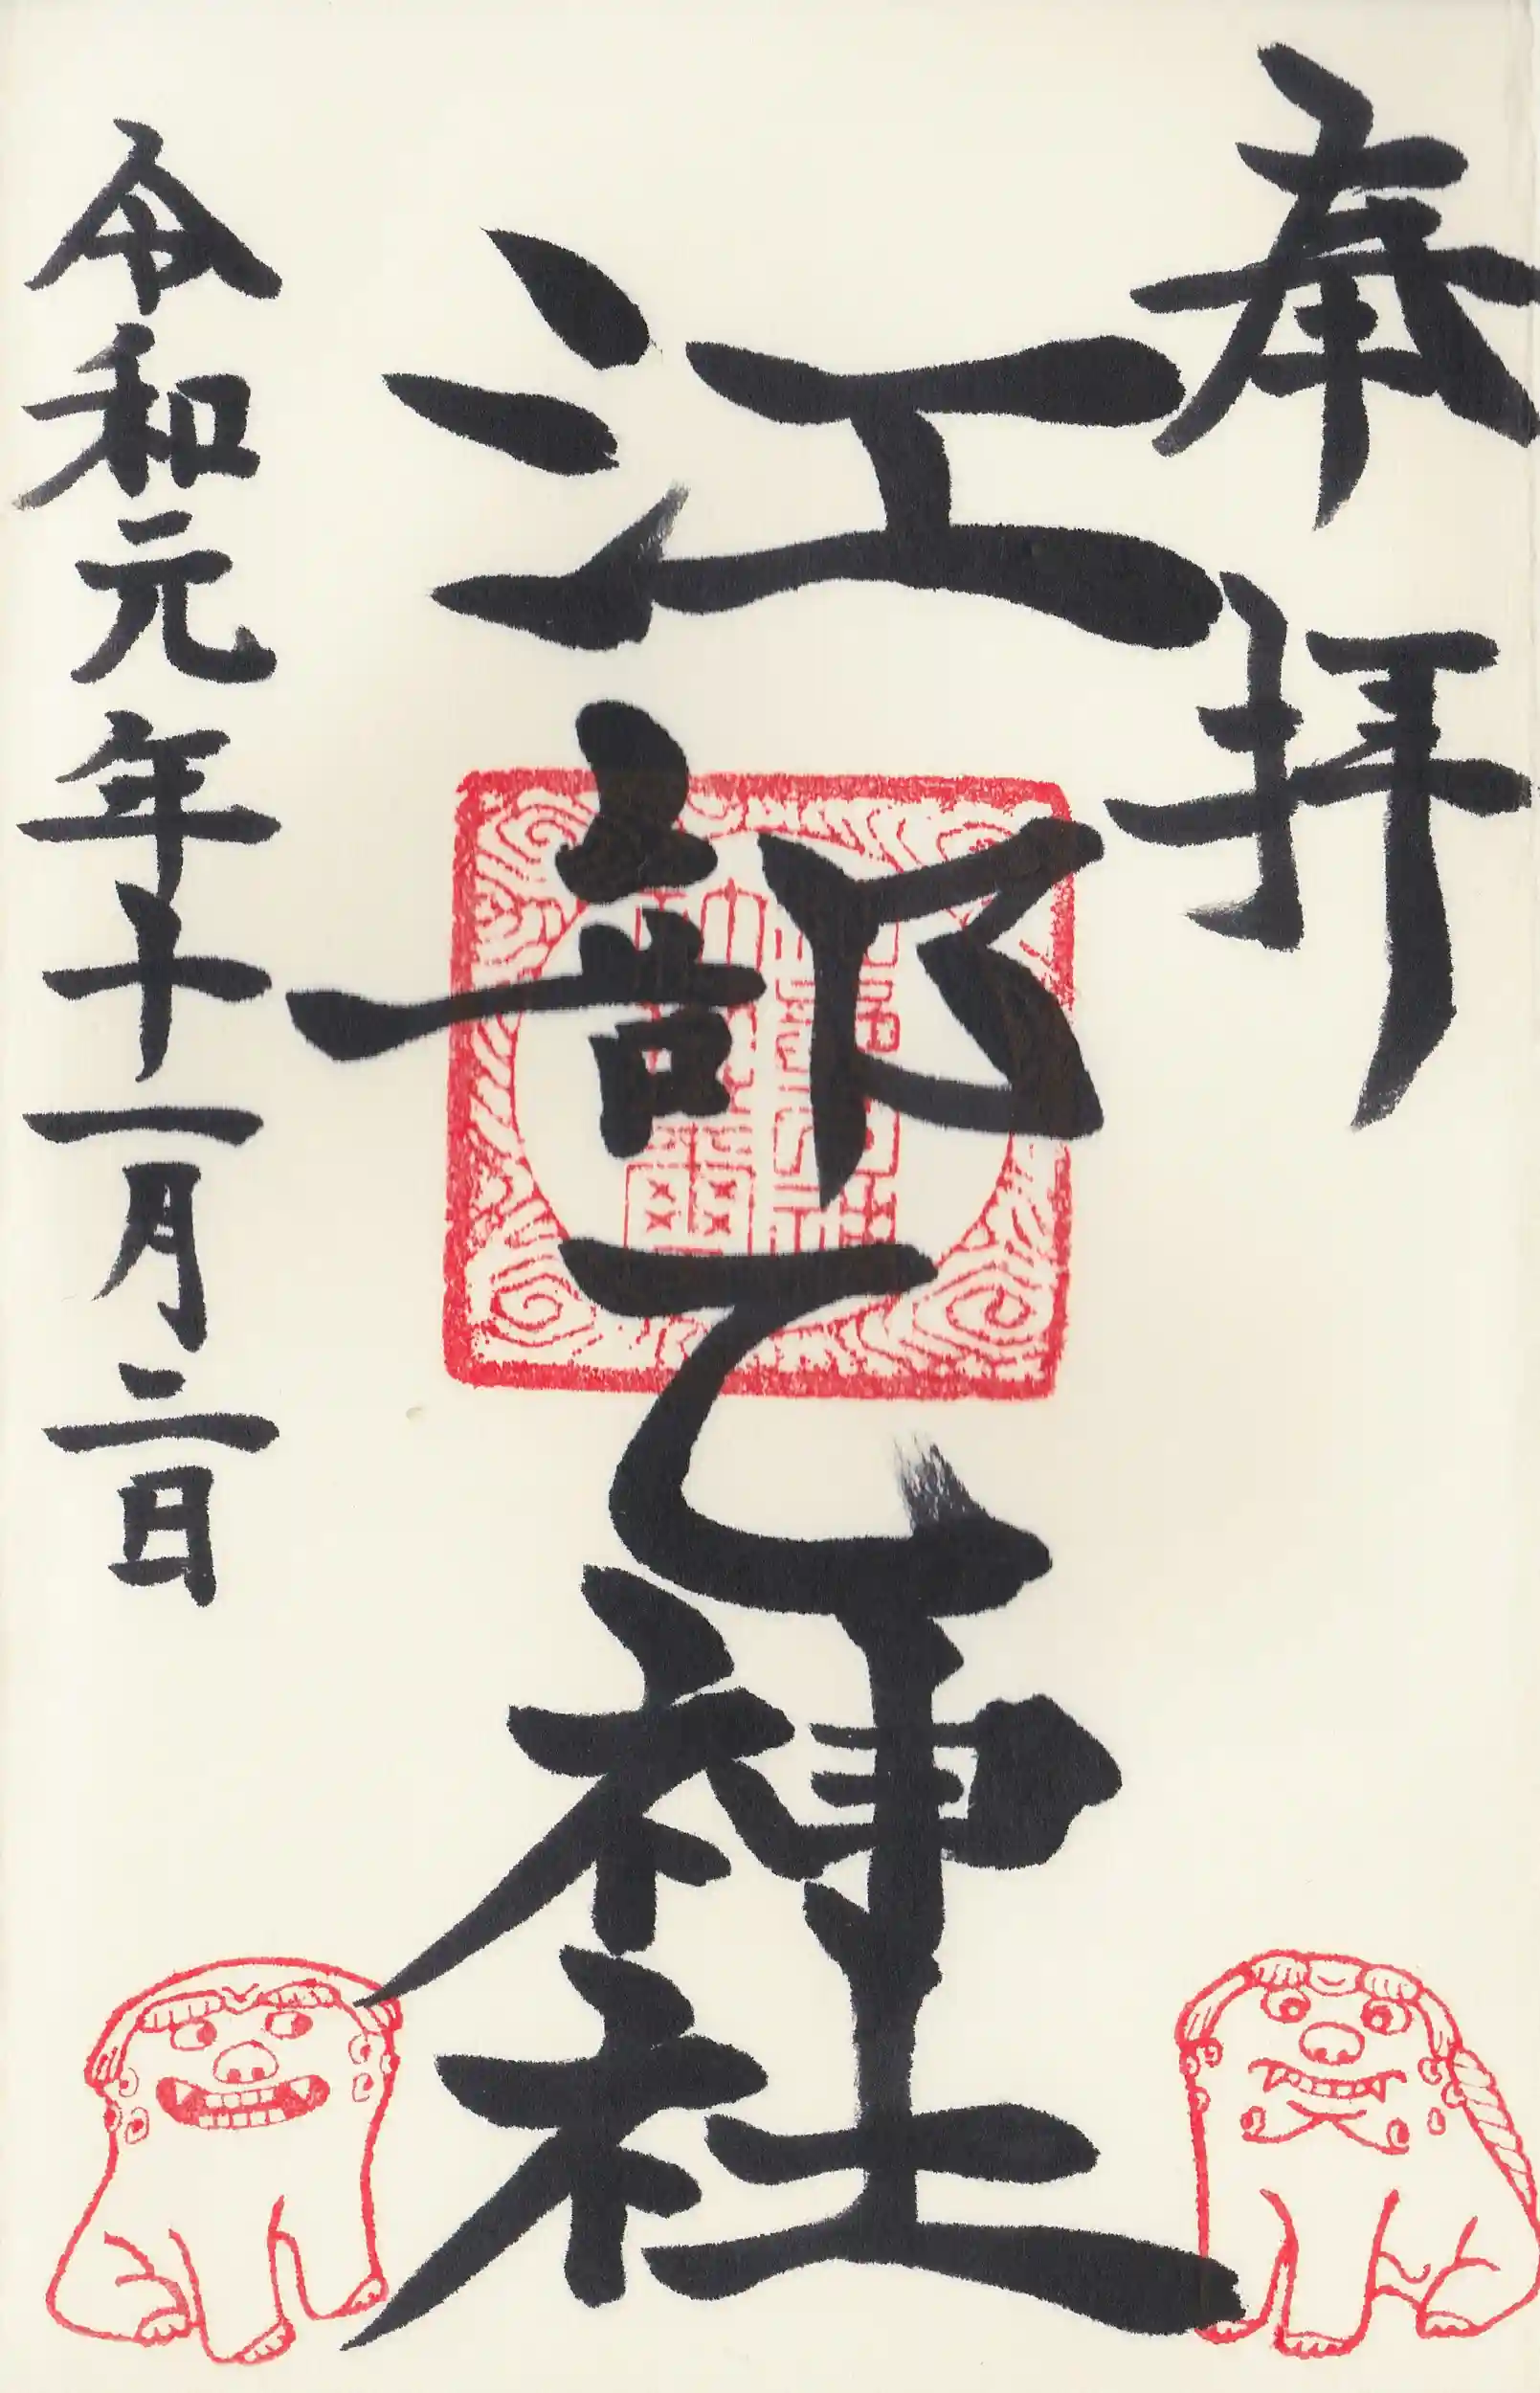 奉拝
江部乙神社
令和元年十一月二日